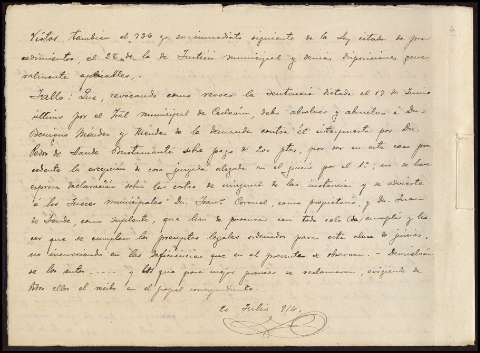 Vistos tambien el 736 y su inmediato siguiente de la Ley citada de pro
cedimientos, el 26 de la de Justicia municipal y demas disposiciones gene
ralmente aplicables.
Fallo: Que, revocando como revoco la sentencia dictada el 17 de Junio
último por el Trbal municipal de debo absolver y absuelvo á Dn
Benigno Méndez y Méndez de la demanda contra él interpuesta por Dn
Pedro de sobre pago de 200 ptas, por ser en este caso pro
cedente la excepción de cosa juzgada alegada en el juicio por el 1º; no se hace
expresa declaración sobre las costas de ninguna de las instancias y se advierte
á los Jueces municipales Dn Franco como propietario, y Dn Juan
de como suplente, que han de procurar con todo celo cumplir y ha
cer que se cumplan los preceptos legales ordenados para esta clase de juicios,
no incurriendo en las deficiencias que en el presente se observan. - Devuélvan
se los autos ..... y los que para mejor proveer se reclamaron, exigiendo de
todos ellos el recibo en el papel correspondiente.
20 Julio 914.